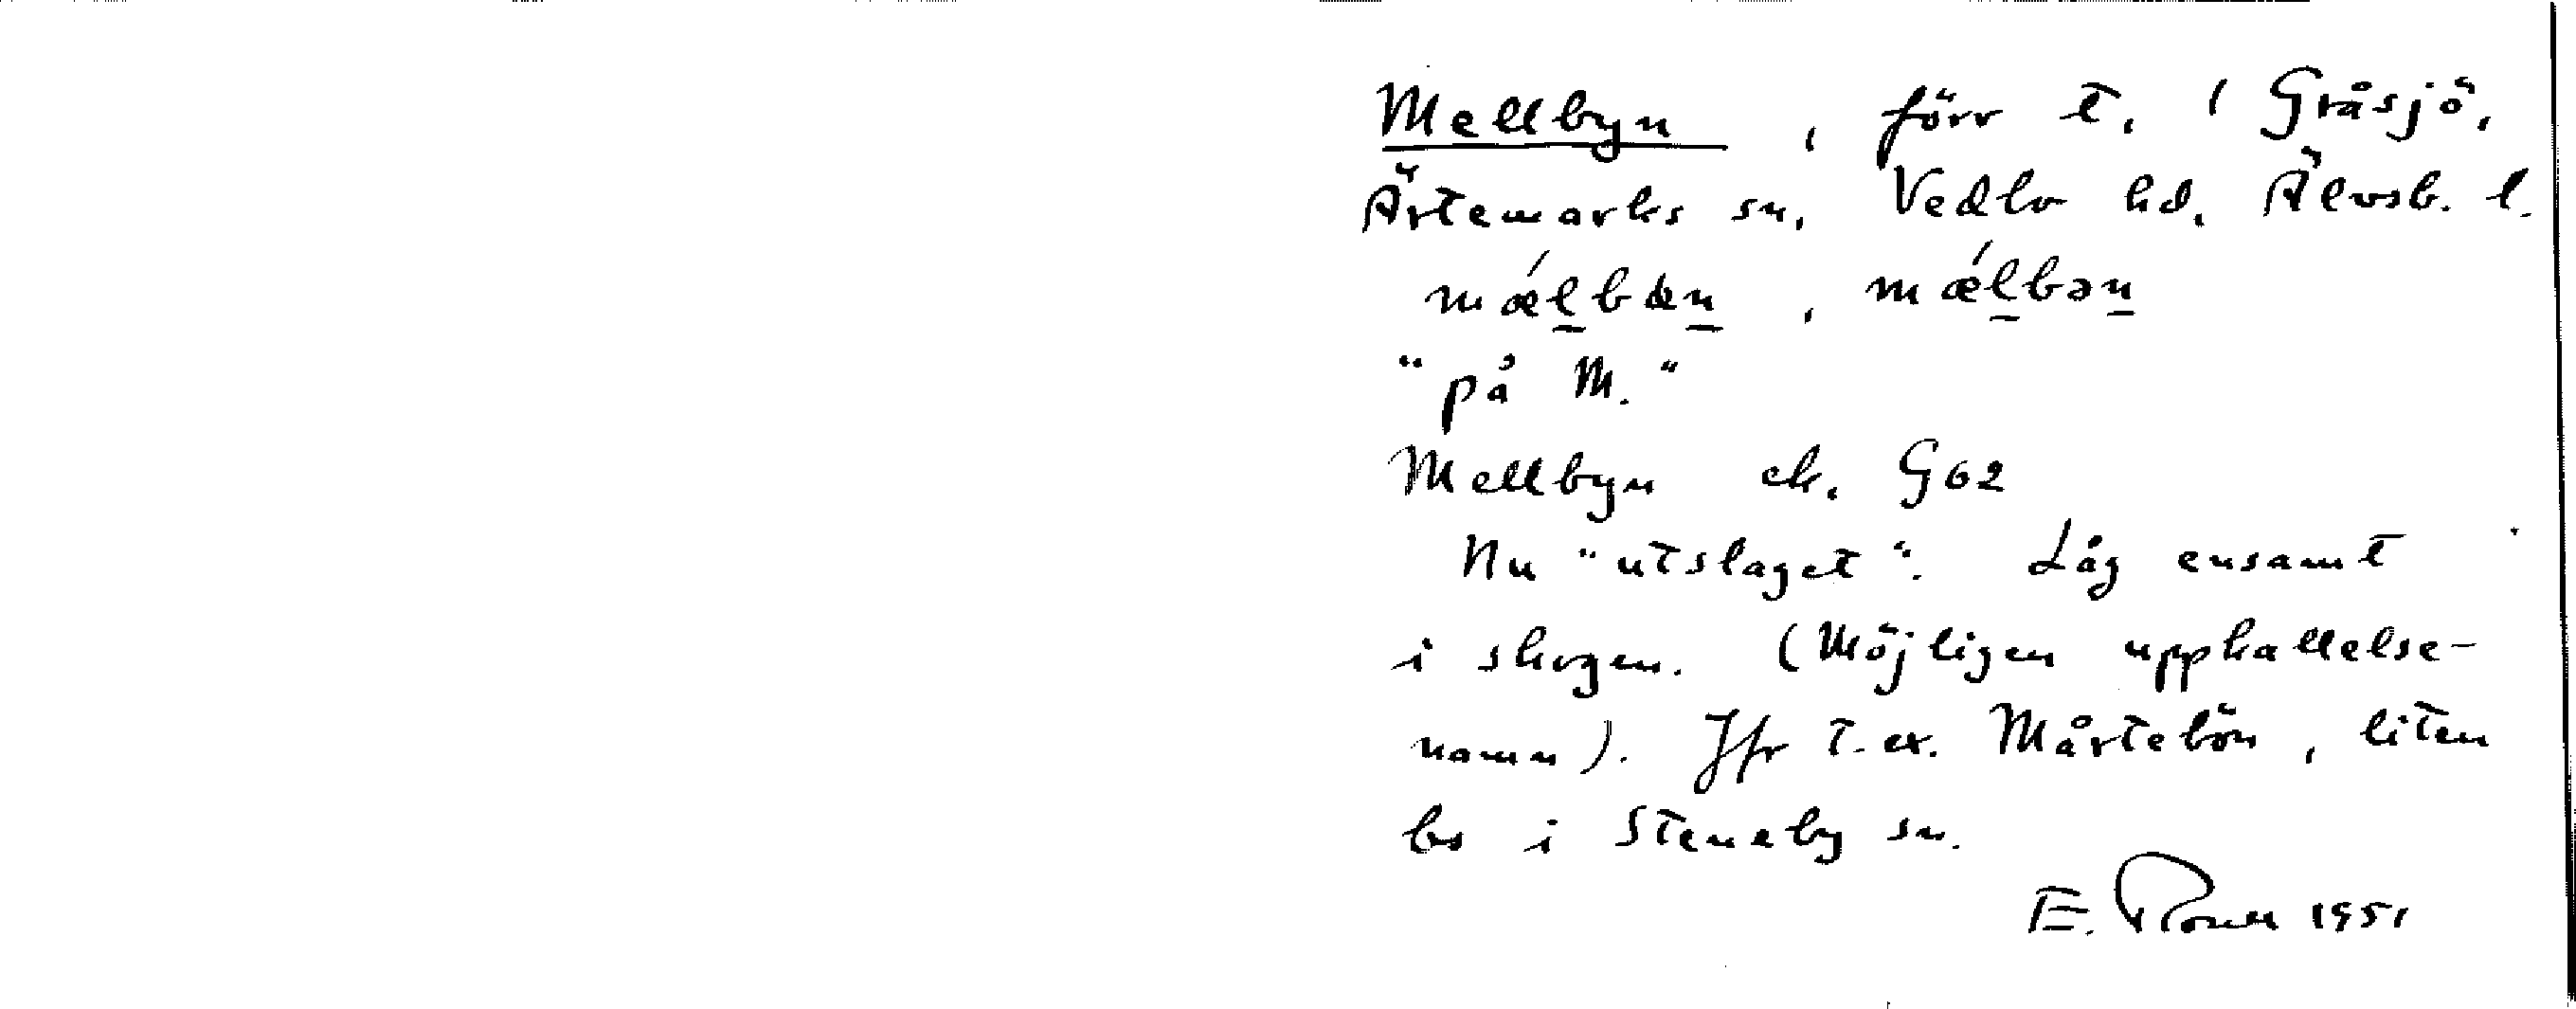 Mellbyn, förr t. i Gråsjö,
Ärtemarks sn, Vedbo hd, Älvsb. l.
mǽlbən
"på M."
Mellbyn ek. G62
Nu "utslaget". Låg ensamt
i skogen. (Möjligen uppkallelse-
namn). Jfr t.ex. Mårtebön, liten
bs i Steneby sn.
E. 1951